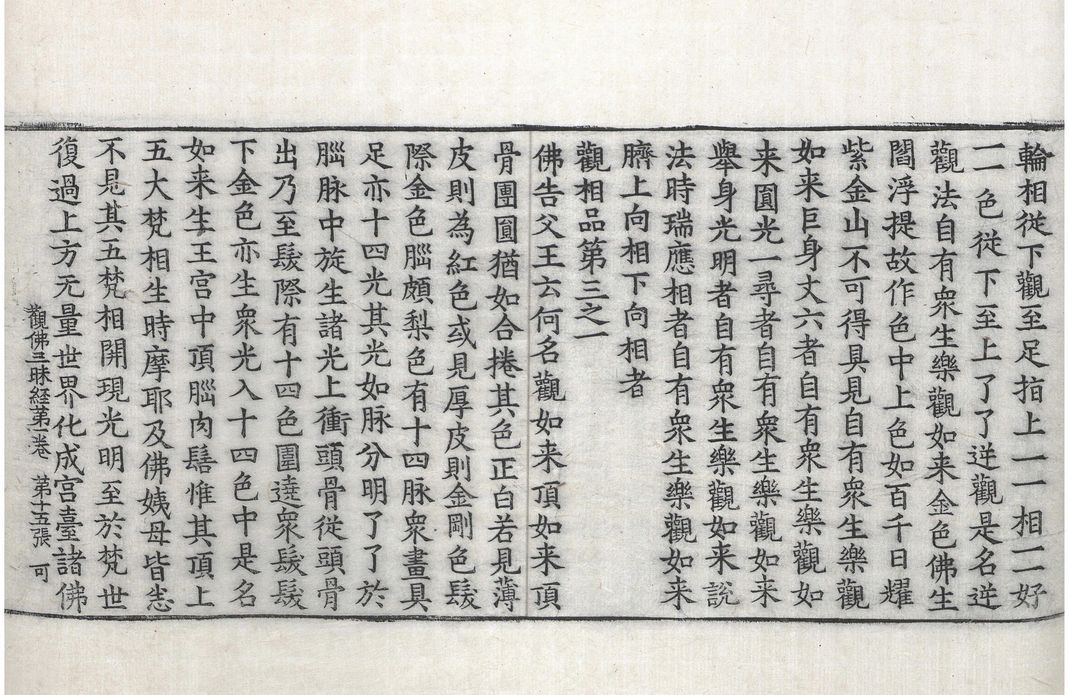 輪相從下觀至足指上一一相一一好
一一色從下至上了了逆觀是名逆
觀法自有衆生樂觀如來金色佛生
閻浮提故作色中上色如百千日耀
紫金山不可得具見自有衆生樂觀
如来巨身丈六者自有衆生樂觀如
来圓光一尋者自有衆生樂觀如来
舉身光明者自有衆生樂觀如来說
法時瑞應相者自有衆生樂觀如来
臍上向相下向相者
觀相品第三之一
佛告父王云何名觀如来頂如来頂
骨團圓猶如合捲其色正白若見薄
皮則為紅色或見厚皮則金剛色髮
際金色腦頗梨色有十四脉衆畫具
足亦十四光其光如脉分明了了於
腦脉中旋生諸光上衝頭骨從頭骨
出乃至髮際有十四色圍遶衆髮髮
下金色亦生衆光入十四色中是名
如来生王宫中頂腦肉髻惟其頂上
五大梵相生時摩耶及佛姨母皆悉
不見其五梵相開現光明至於梵世
復過上方无量世界化成宫臺諸佛
觀佛三昧経第一卷 第十五張 可